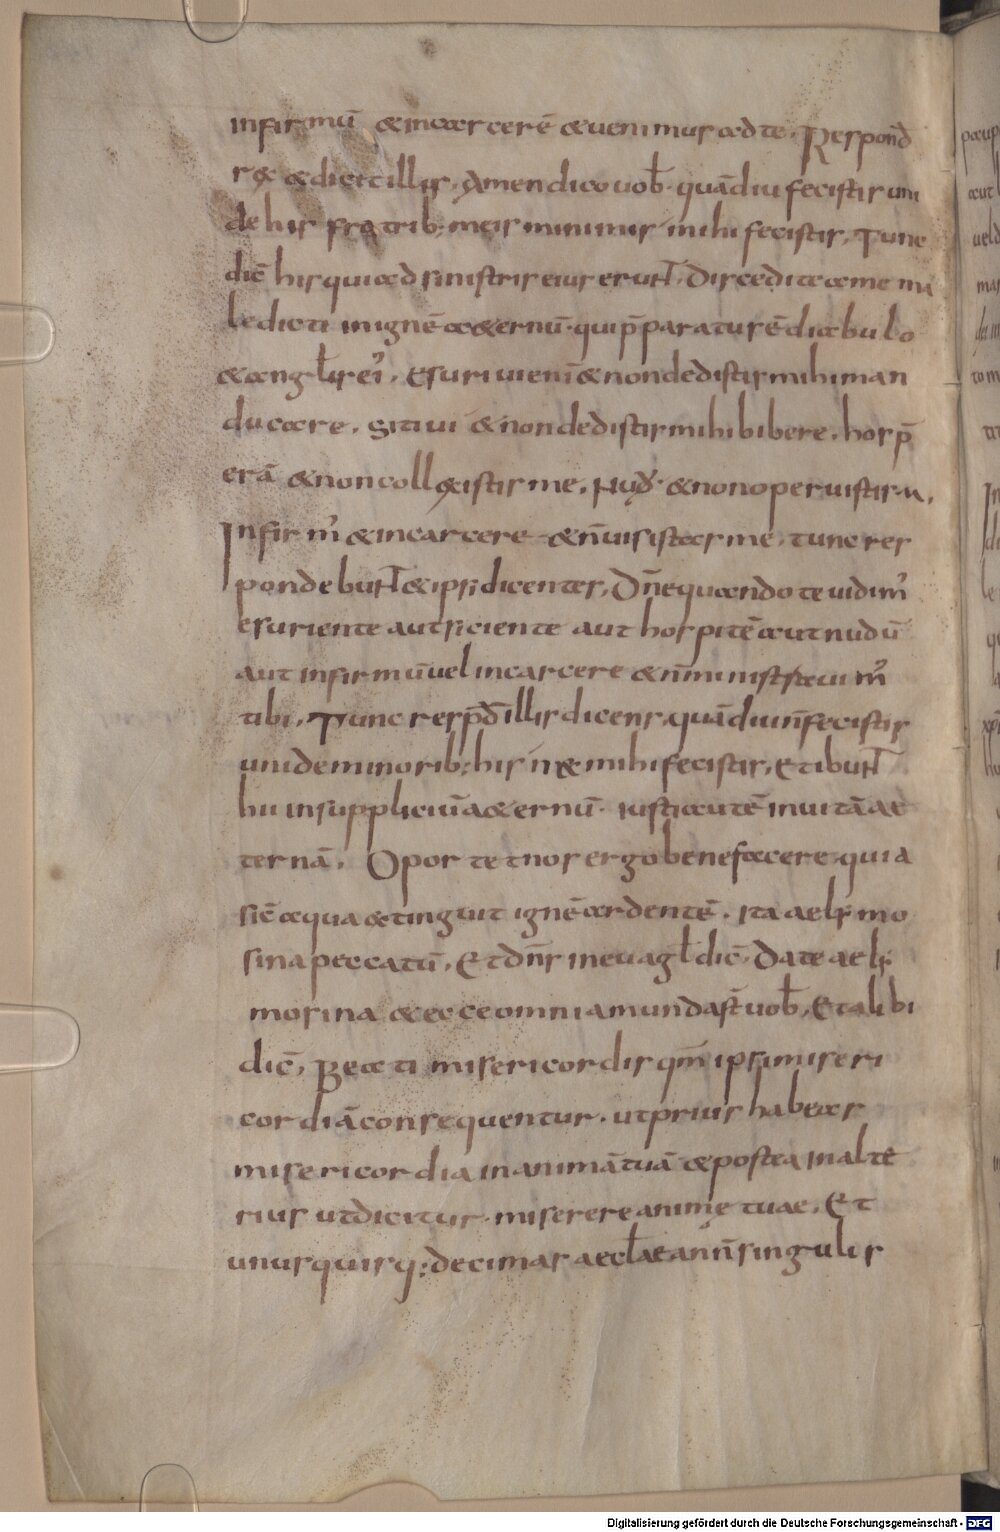 infirmū &incarcerē &uenimus ad te. Respond̄
r& &dic& illis. Amen dico uob̄. quādiu fecistis uni
de his fratrib; meis minimis mihi fecistis. Tunc
dic̄ his qui ad sinistris eius erunt̄. Discedite a me ma
ledicti in ignē a&ernū. qui p̄paratus ē diabulo
&angl̄is ei'. Esuriui eni &non dedistis mihi man
ducare. Sitiui &non dedistis mihi bibere. hosp̄
erā &non coll&istis me. Nuđ. &non operuistis
Infirm' &incarcere &n̄ uisistas me. tunc res
pondebunt̄ &ipsi dicentes. Dn̄e quando te uidim'
esuriente aut siciente aut hospitē aut nudū
aut infirmū uel incarcere &n̄ ministrauim'
tibi. Tunc resp̄đ illis dicens. quādiu n̄ fecistis
uni de minorib; his n& mihi fecistis. Et ibunt̄
hii in suppliciū a&ernū. iusti autē in uitā ae
ternā. Oportet nos ergo bene facere. quia
sic̄ aqua &tinguit ignē ardentē. Ita aelę mo
sina peccatū. Et dn̄s in euagl̄ dic̄. Date aelę
mosina &ecce omnia munda st̄ uob̄. Et alibi
dic̄. Beati misericordis qm̄ ipsi miseri
cordiā consequentur. ut prius habeas
misericordia in animā tuā &postea in alte
rius ut dicitur. miserere animę tuae. Et
unusquisq; decimas aeclae annī singulis
Digitalisierung gefördert durch die Deutsche Forschungsgemeinschaft - DFG